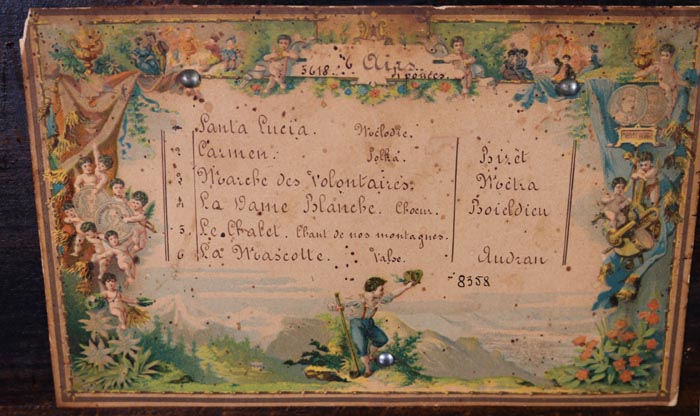 6 Airs
5618. 4 pouces.
1 Santa Lucia. Mélodie.
2 Carmen. Polka. Bizèt
3 Marche des Volontaires. Mètra
4 La Dame Blanche. Choeur. Boieldieu
5. Le Chalet. Chant de nos montagnes.
6 La Mascotte. Valse. Audran
8358